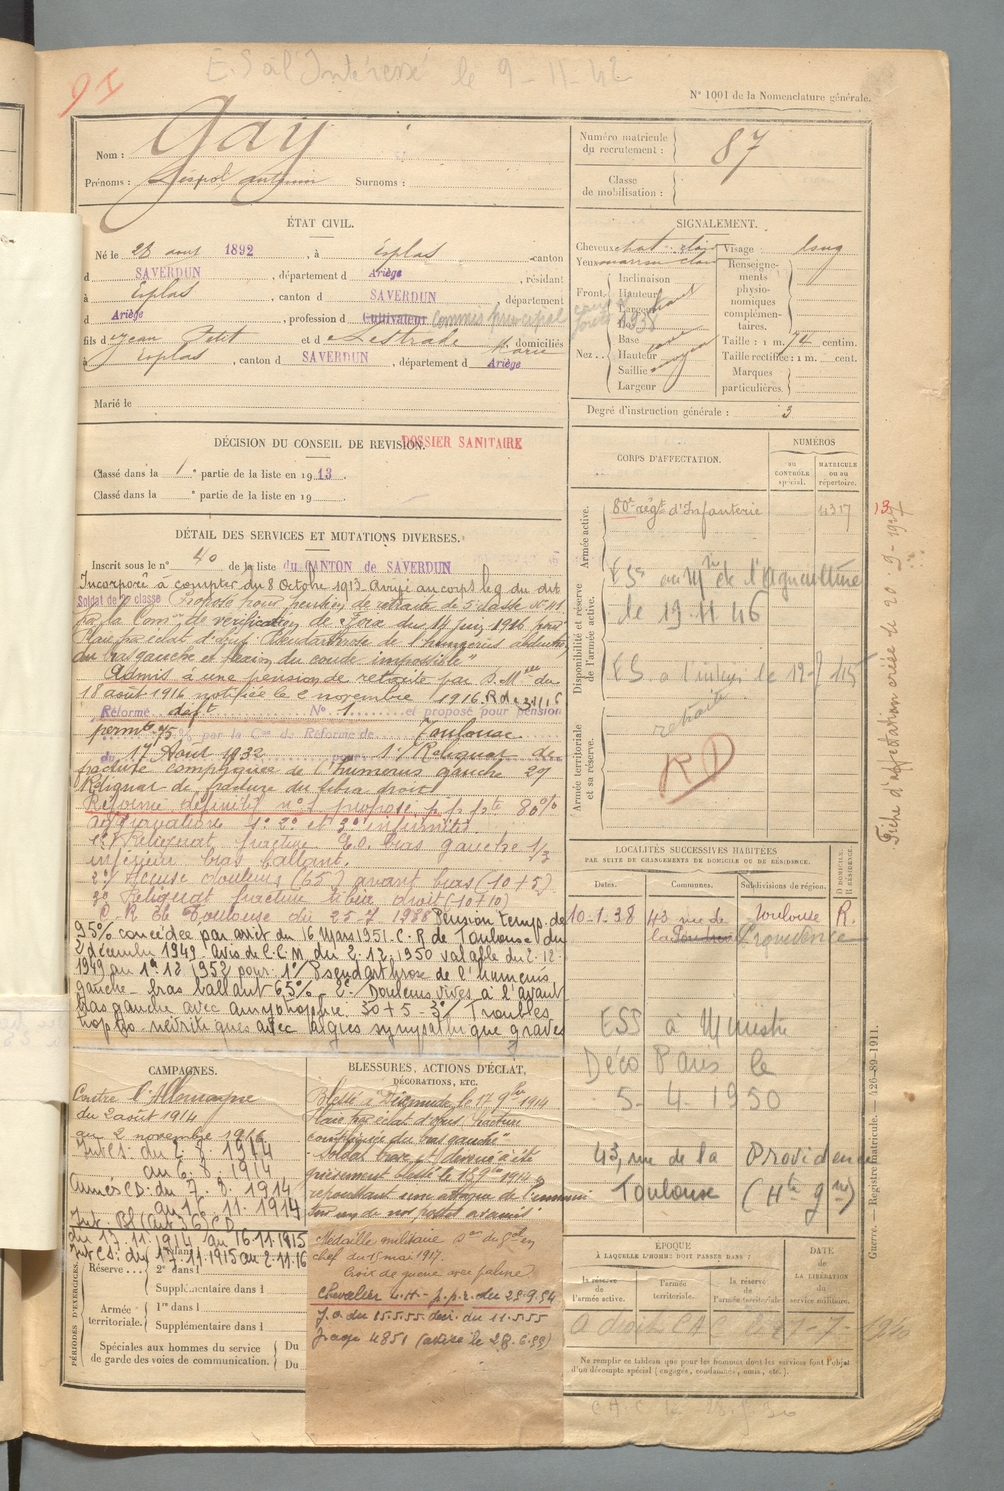 91
E.S à l'Intéressé le 9-11-42
N° 1001 de la Nomenclature générale.
Nom : Gay
Prénoms : Léopol, Antonin Surnoms :
Numéro matricule du recrutement : 87
Classe de mobilisation :
ÉTAT CIVIL.
Né le 28 août 1892, à Esplas canton
d SAVERDUN, département d Ariège, résidant
à Esplas, canton d SAVERDUN département
d Ariège, profession d Cultivateur Commis principal
fils d Jean Petit et d Lestrade Marie, domiciliés
à Esplas, canton d SAVERDUN, département d Ariège
Marié le
SIGNALEMENT.
Cheveux chat. clair Visage long
Yeux marron clair
Front Inclinaison
Hauteur
Largeur
Nez Dos
Base
Hauteur moyen
Saillie
Largeur
Renseignements physionomiques complémentaires.
Taille : 1 m. 74 centim.
Taille rectifiée : 1 m. cent.
Marques particulières.
Degré d'instruction générale : 3
DÉCISION DU CONSEIL DE REVISION. DOSSIER SANITAIRE
Classé dans la 1e partie de la liste en 1913.
Classé dans la e partie de la liste en 19
DÉTAIL DES SERVICES ET MUTATIONS DIVERSES.
Inscrit sous le n° 40 de la liste du CANTON de SAVERDUN
Incorporé à compter du 8 Octobre 1913. Arrivé au corps le g. du dit
Soldat de 2e classe Proposé pour pension de retraite de 5e classe
par la Comon de vérification de Foix du 14 juin 1916 pour
Plaie par éclat d'obus. Pseudarthrose de l'humérus abduction
du bras gauche et flexion du coude impossible"
Admis à une pension de retraite par D. Melle du
18 août 1916 notifiée le 2 novembre 1916.
Réformé deft N° 1 et proposé pour pension
permte 75 % par la Con de Réforme de Toulouse
du 17 Aout 1932 pour 1°/ Reliquat de
fracture compliquée de l'humerus gauche 2°/
Reliquat de fracture du tibia droit
Réformé définitif n°1 proposé p. p. pte 80%
aggravation 1° 2° et 3° infirmités
1°/ Reliquat fracture bras gauche 1/3
inférieur bras ballant.
2°/ Accuse douleurs (65) avant bras (10+5)
3° Reliquat fracture tibia droit (10+10)
C.R. de Toulouse du 25-7-1938 Pension temp. de
95% concédée par arrêt du 16 Mars 1951. C.R de Toulouse du
2 décembre 1949. avis de C.C.M du 2.12.1950 valable du 2.12.
1949 au 1er.12.1952 pour: 1°/ Pseudarthrose de l'humérus
gauche - bras ballant 65% - 2°/ Douleurs vives à l'avant
bras gauche avec amyotrophie. 30+5 - 3°/ Troubles
tropho-névritiques avec algies sympathiques graves
CORPS D'AFFECTATION.
NUMÉROS
AU CONTRÔLE spécial.
MATRICULE ou au répertoire.
Armée active.
80e régt d'Infanterie 4317
Disponibilité et réserve de l'armée active.
ESs au Mre de l'Agriculture
le 19.11.46
retraité
RD
Armée territoriale et sa réserve.
LOCALITÉS SUCCESSIVES HABITÉES
PAR SUITE DE CHANGEMENTS DE DOMICILE OU DE RÉSIDENCE.
Dates. Communes. Subdivisions de région. D DOMICILE. R RÉSIDENCE.
10-1-38 43 rue de la Providence Toulouse R.
ESS à Ministre
Déco Paris le
5-4-1950
43, rue de la Providence
Toulouse (Hte Gne)
CAMPAGNES.
Contre l'Allemagne
du 2 août 1914
au 2 novembre 1916
Int CS: du 2.8.1914
au 6.8.1914
Armées CD: du 7.8.1914
au 17.11.1914
Int. Bl (art 36) CD
Int CS: du 17.11.1915 au 2.11.16
BLESSURES, ACTIONS D'ÉCLAT,
DÉCORATIONS, ETC.
Blessé à Dixmude, le 17 9bre 1914
Plaie par éclat d'obus, fracture
compliquée du bras gauche"
Soldat brave et dévoué a été
grièvement blessé le 18 9bre 1914 en
repoussant une attaque de l'ennemi
sur un de nos postes avancés
Médaille militaire Don du Gal en
chef du 15 mai 1917.
Croix de guerre avec palme
Chevalier L.H - p.p.r. du 28.9.54
J.O. du 15.5.55 déc. du 11.5.55
page 4851
PÉRIODES D'EXERCICES.
Réserve
2e dans l
Supplémentaire dans l
Armée territoriale.
1re dans l
Supplémentaire dans l
Spéciales aux hommes du service de garde des voies de communication.
Du
Du
ÉPOQUE
À LAQUELLE L'HOMME DOIT PASSER DANS :
la réserve de l'armée active.
l'armée territoriale.
la réserve de l'armée territoriale.
DATE DE LA LIBÉRATION du service militaire.
Ne remplir ce tableau que pour les hommes dont les services font l'objet d'un décompte spécial (engagés, condamnés, omis, etc.).
Fiche d'affectation
Guerre. — Registre matricule. — 426-89-1911.